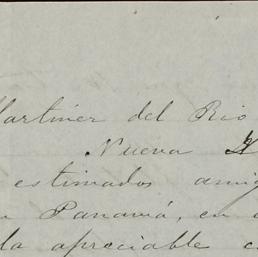 Martinez del Rio
Nueva
estimados
Panamá, en
la apreciable